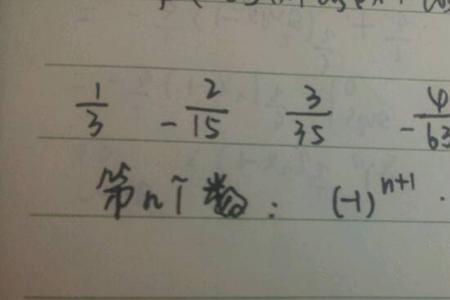 1/3 -2/15 3/35 -4/63
第n个数：(-1)^{n+1} ·